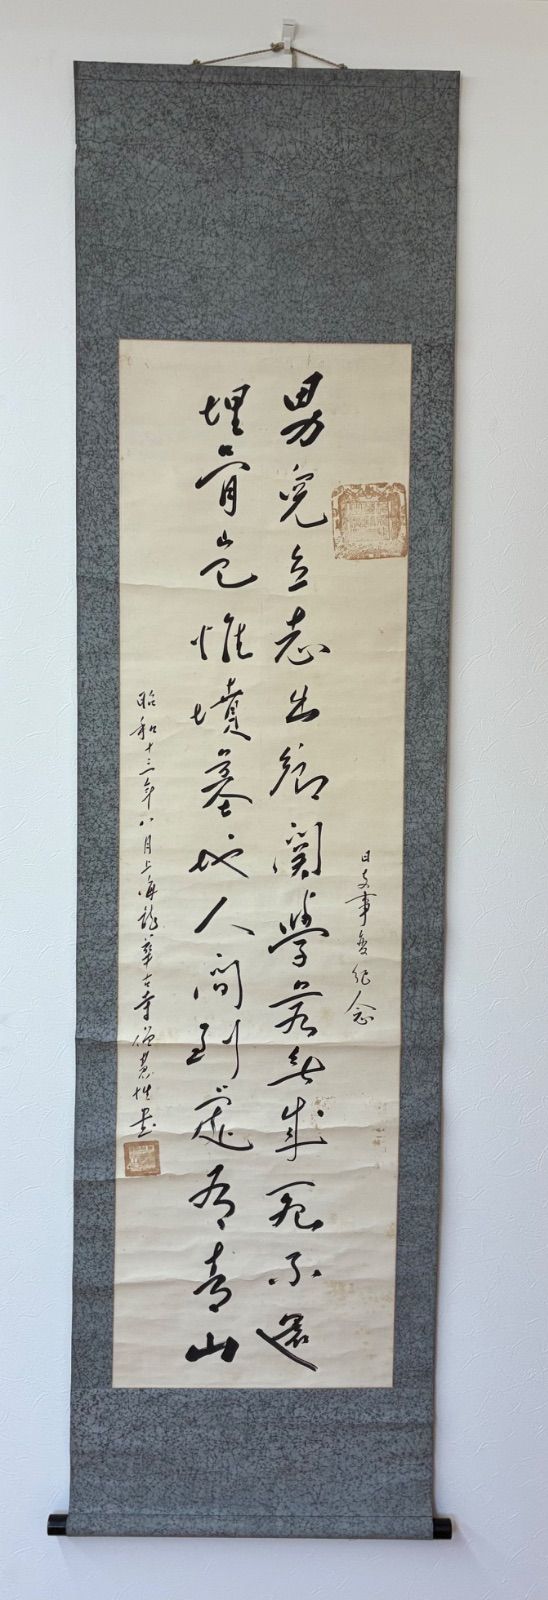 日支事変紀念
男兒立志出鄉関學若無成死不還
埋骨豈惟墳墓地人間到處有青山
昭和十三年八月上海龍華古寺僧慧性書